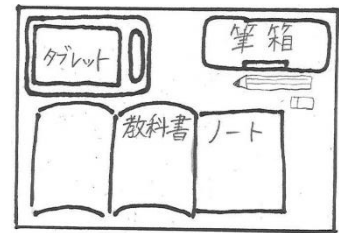 タブレット
筆箱
教科書
ノート